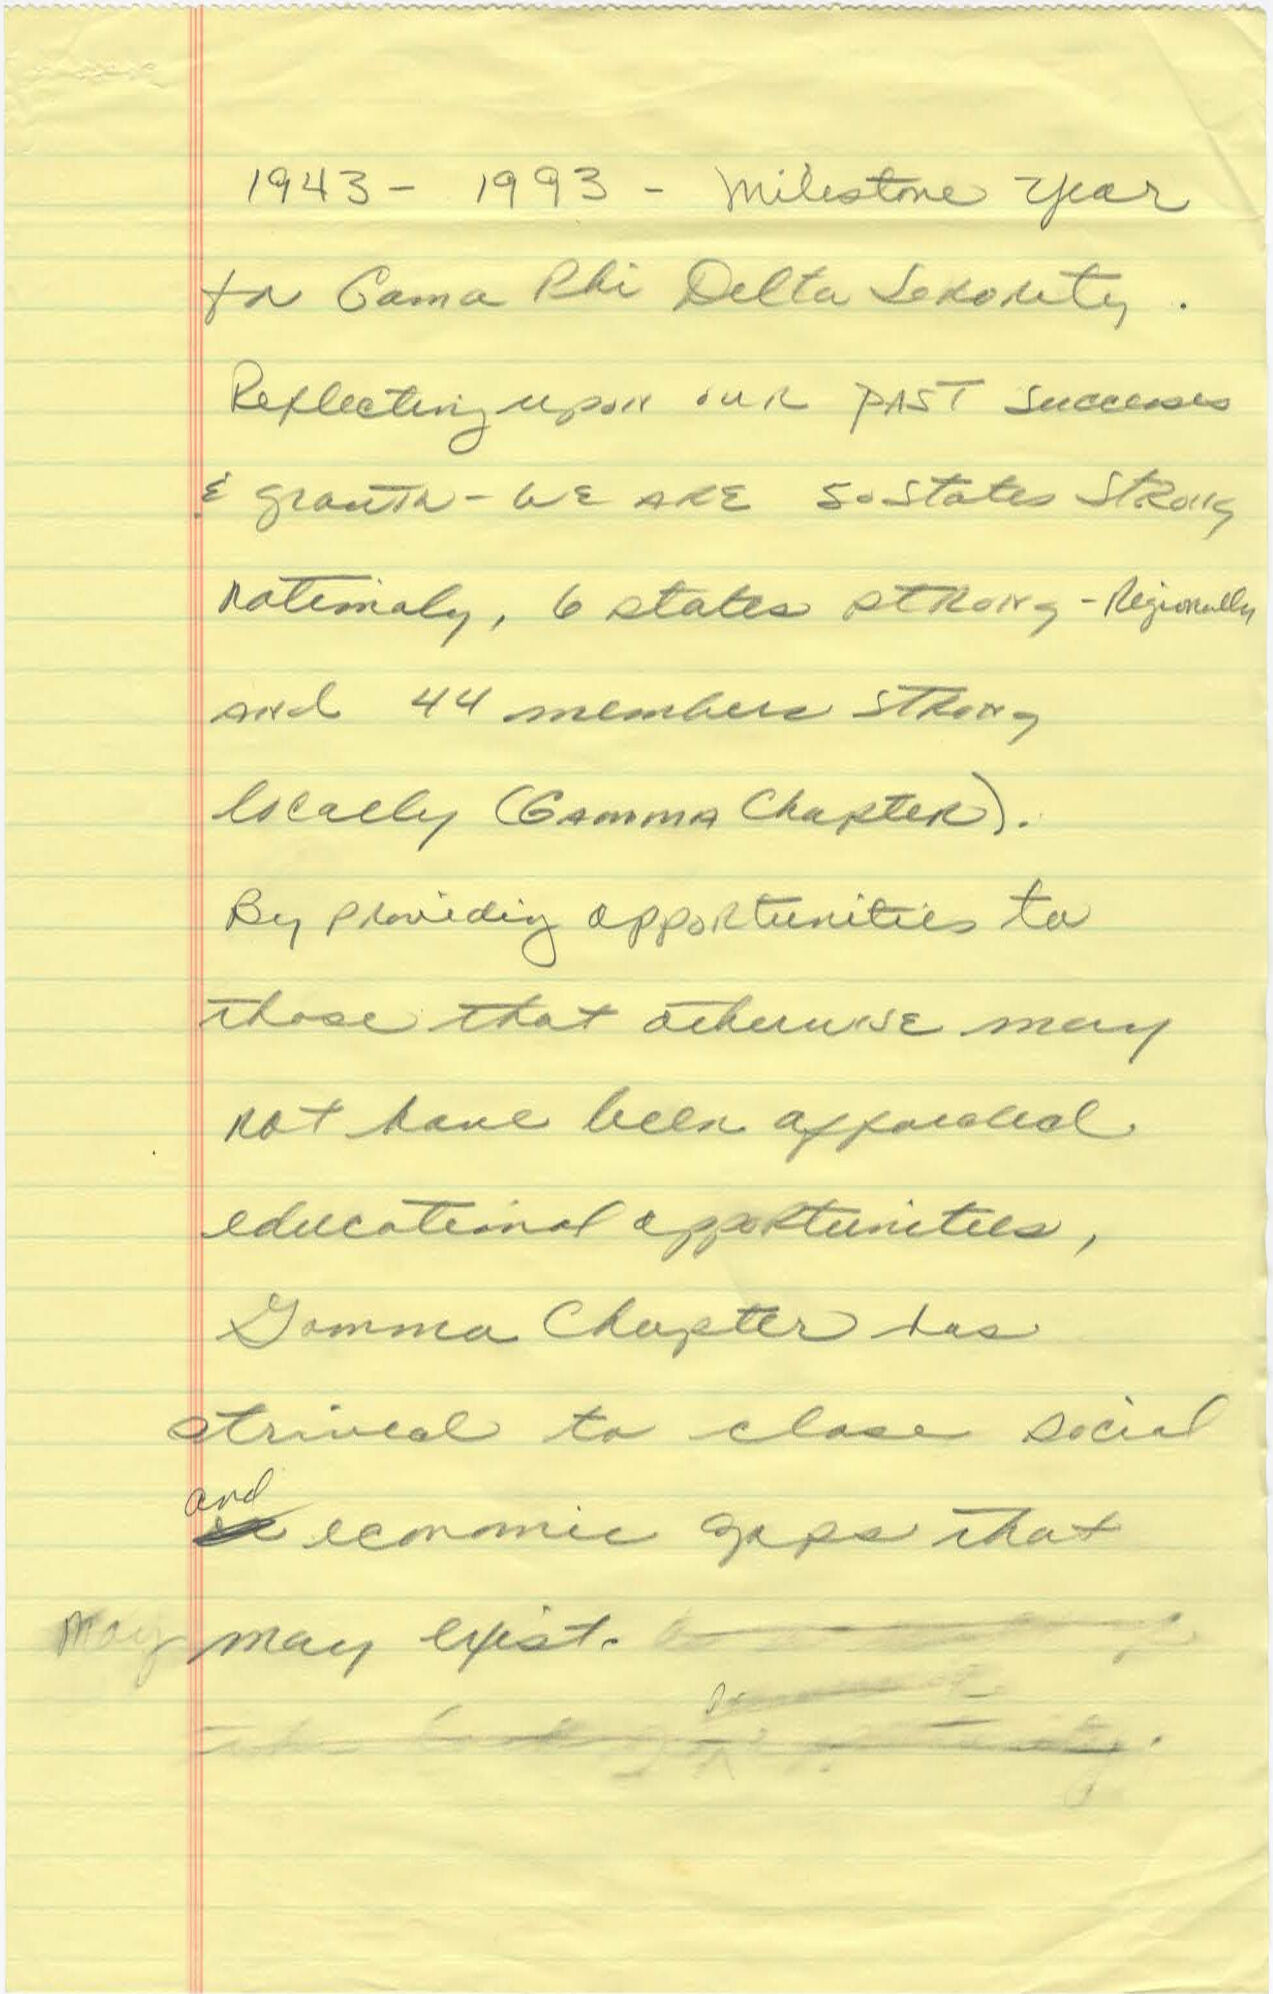 1943 - 1993 - Milestone Year
for Gama Phi Delta Sorority.
Reflecting upon our PAST successes
& growth - WE ARE 50 states Strong
nationaly, 6 states strong - Regionally
and 44 members strong
locally (Gamma Chapter).
By providing opportunities to
those that otherwise may
not have been afforded
educational opportunities,
Gamma Chapter has
strived to close social
and
economic gaps that
may may exist.